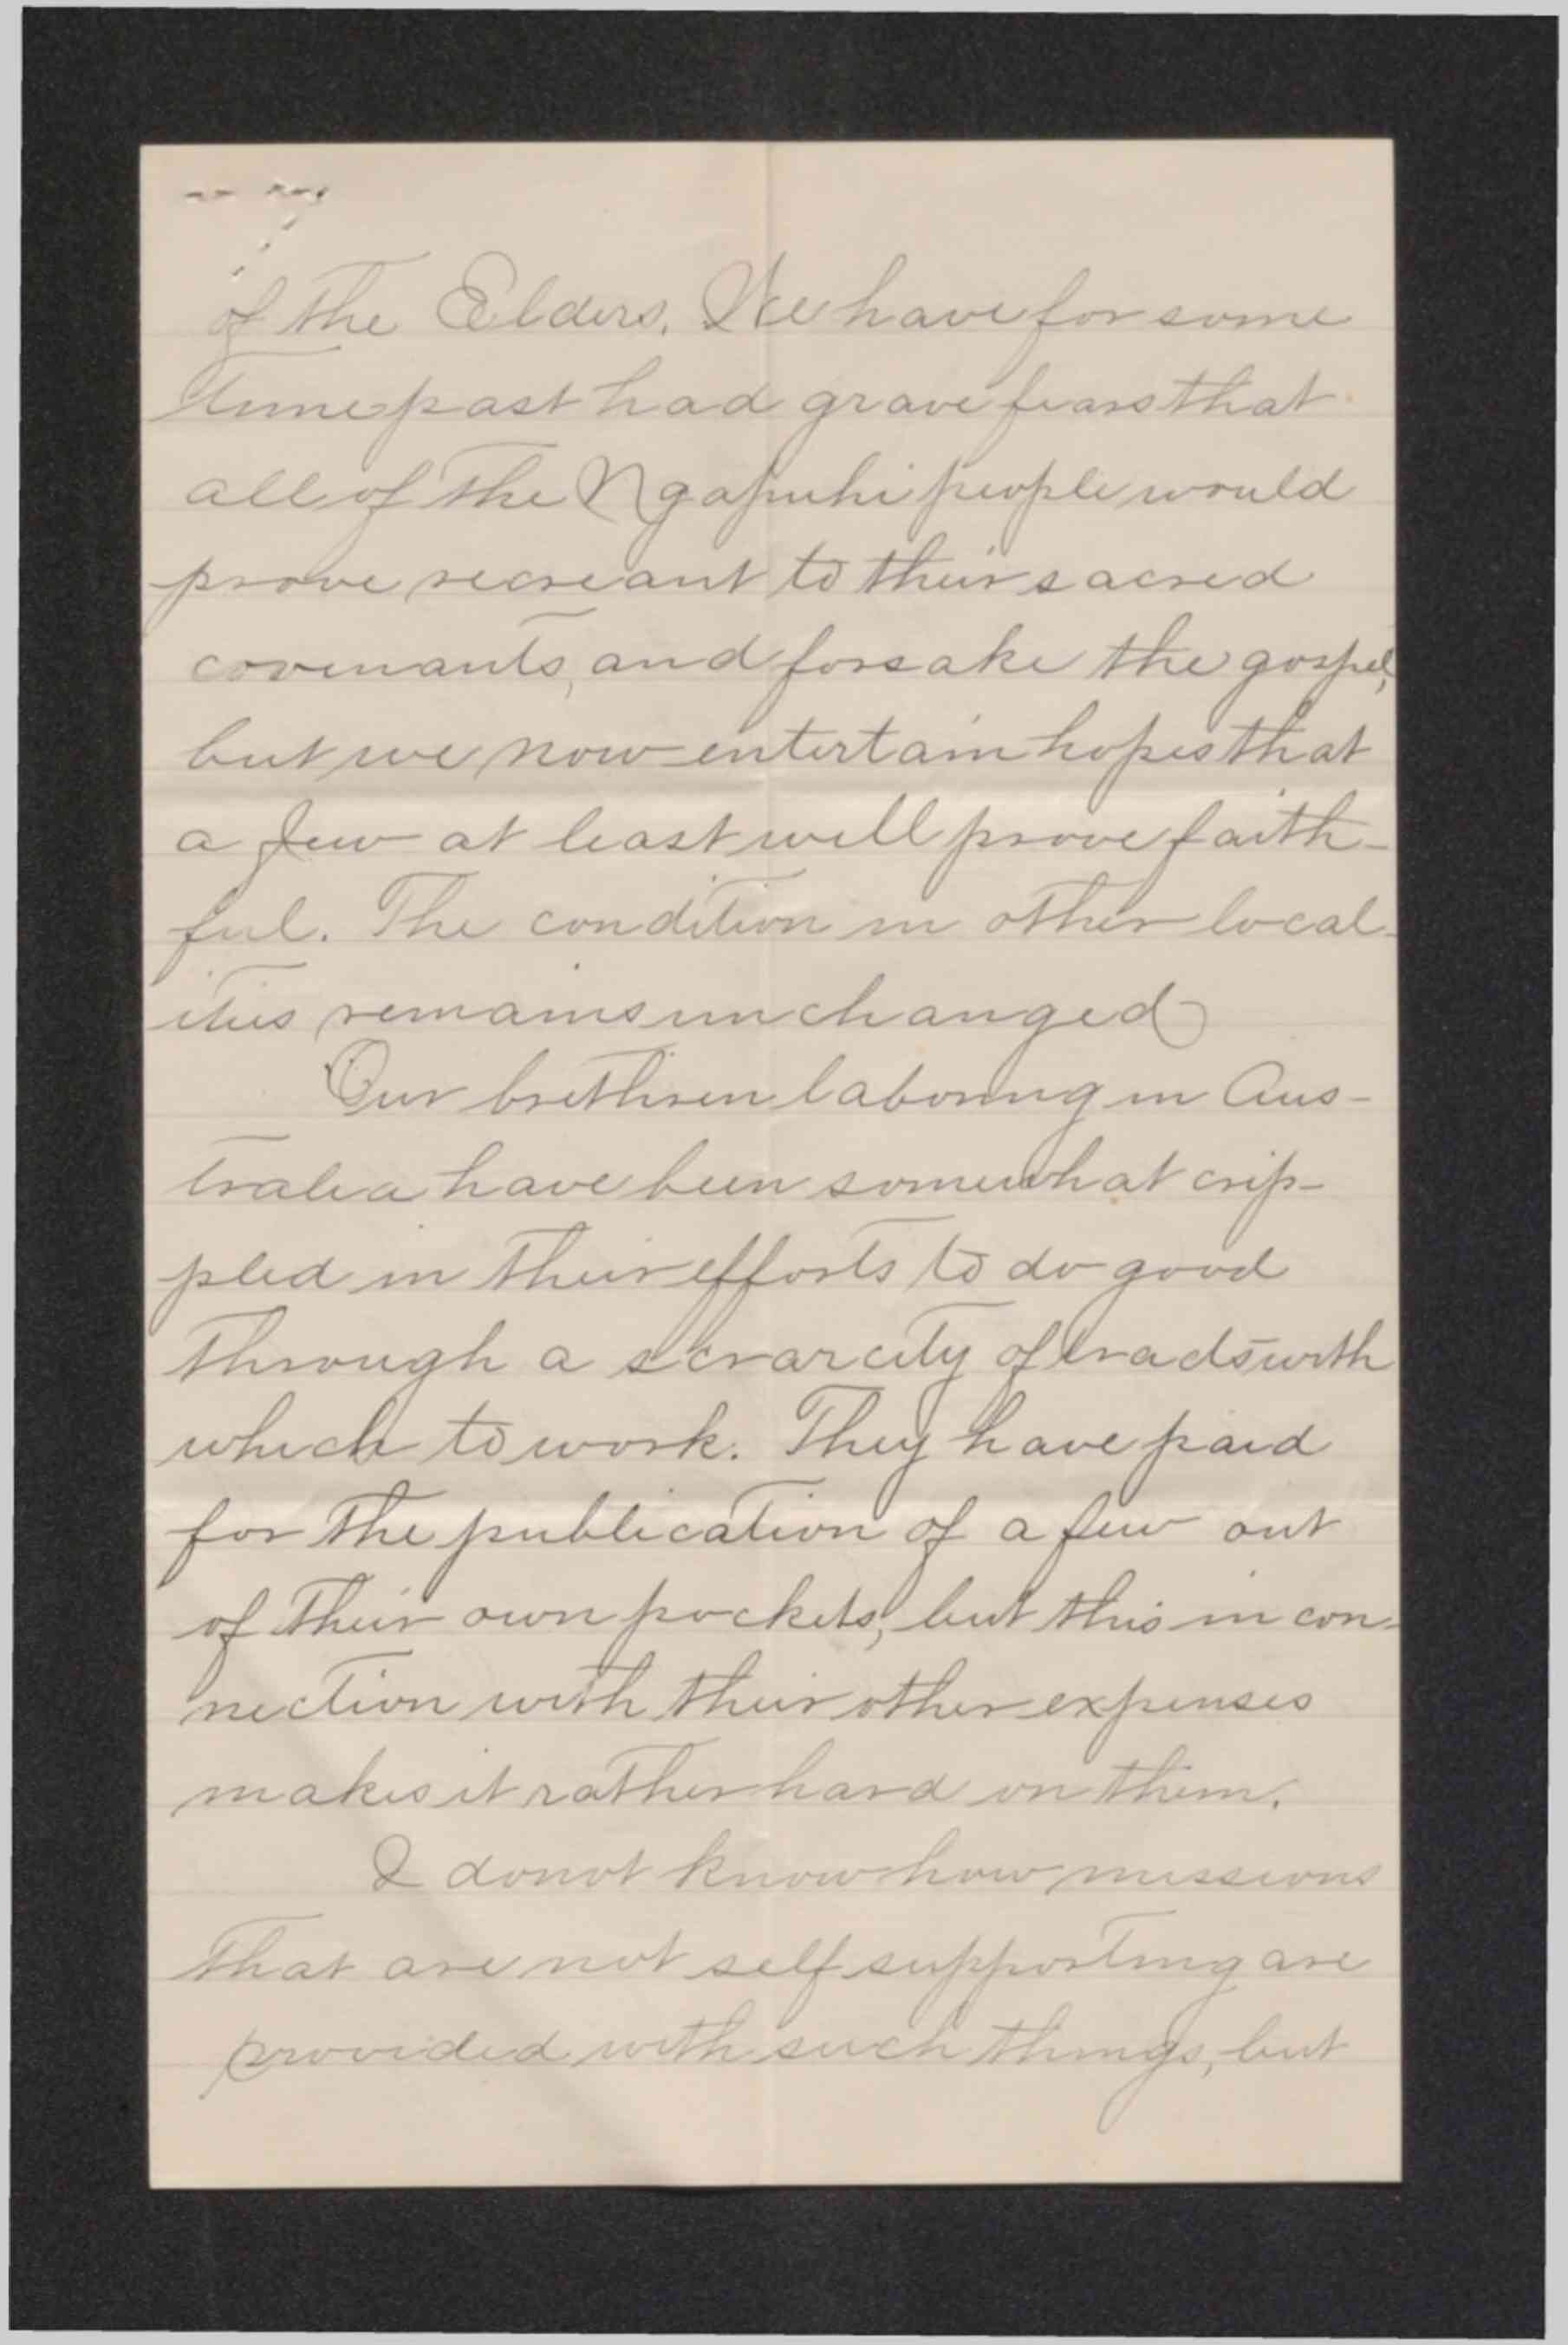 of the Elders. We have for some
time past had grave fears that
all of the Ngapuhi people would
prove recreant to their sacred
covenants, and forsake the gospel,
but we now entertain hopes that
a few at least will prove faith-
ful. The condition in other local-
ities remains unchanged
Our brethren laboring in Aus-
tralia have been somewhat crip-
pled in their efforts to do good
through a scrarcity of tracts with
which to work. They have paid
for the publication of a few out
of their own pockets, but this in con-
nection with their other expenses
makes it rather hard on them.
I do not know how missions
that are not self supporting are
provided with such things, but